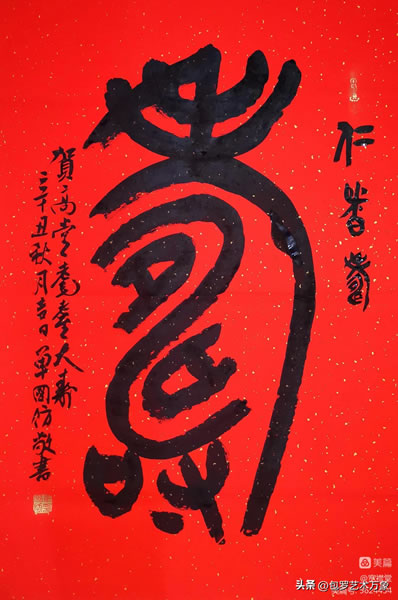 仁者壽
壽
賀高堂耄耋大壽
辛丑秋月吉日單國防敬書
美篇
头条 @包罗艺术万象